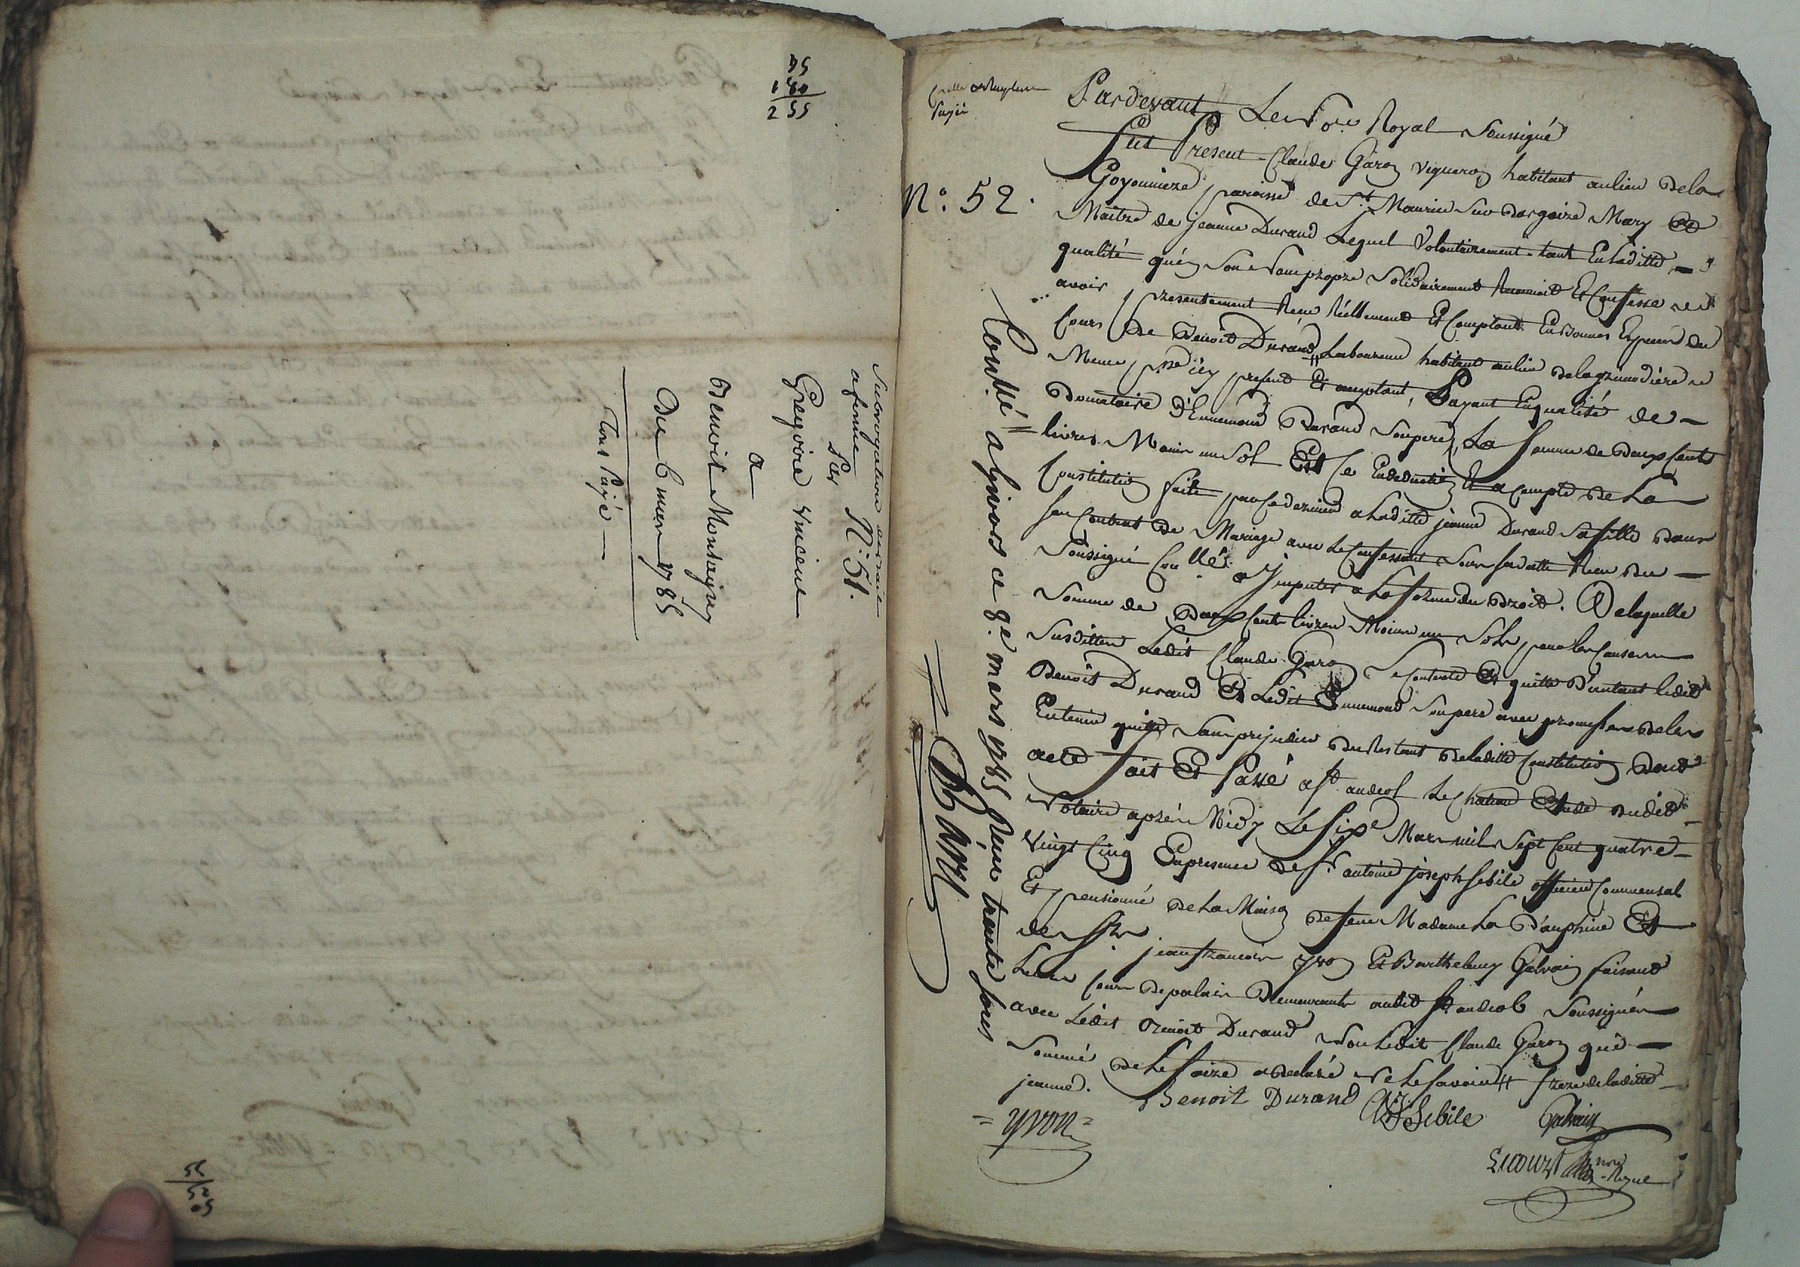 54
180
255
Subrogation
afferme N.° 51.
Par
Gregoire Vincent
a
Benoit Montaigny
Du 6 mars 1785
Tous Payé
55
52
05
Payé
N.° 52.
Pardevant Le No.re Royal Soussigné
Fut Present Claude Garon vigneron habitant au lieu de la
Goyonniere paroisse de S.t Maurice Sur Dargoire Mary et
Maître de jeanne Durand Lequel Volontairement tant En laditte
qualité qu'en Son nom propre Solidairement Reconnoit Et Confesse
avoir presentement Reçu Réellement Et Comptant En Bonnes Especes du
Cours de Benoit Durand, Laboureur habitant au lieu de la grandiere
Meme p.sse icy present Et acceptant, Payant En qualité de
Donnataire D'Ennemond Durand Son pere, La Somme de Deux Cents
livres Moins un Sol Et Ce En deduction Et a Compte de La
Constitution faite par Ce dernier a Laditte jeanne Durand Sa fille Dans
Son Contrat de Mariage avec Le Confessant Sous Sa datte Reçu Du
Soussigné Conllé a Imputer a La forme du Droit. De laquelle
Somme de Deux Cents livres Moins un Sol pour les Causes
Susdittes Ledit Claude Garon Se Contente Et quitte D'autant ledit
Benoit Durand Et Ledit Ennemond Son pere avec promesse de les
En tenir quitte Sans prejudice Du Restant De laditte Constitution Dont
acte Fait Et Passé a S.t andeol Le Chateau Etude Dudit
Notaire après Midy Le Six.e Mars mil Sept Cent quatre
Vingt Cinq En presence de S.r antoine joseph Sebile officier Commensal
Et pensionné de La Maison de feue Madame La Dauphine Et
de S.rs jean françois yvon Et Barthelemy Galvain faisant
Leurs Cours de palais Demeurants audit S.t andeol Soussignés
avec Ledit Benoit Durand Non Ledit Claude Garon qui
Sommé de Le faire a Declaré ne Le Savoir # frere de laditte
jeanne.
Benoit Durand Sebile Galvain
= yvon =
no.re Royal
Con.llé a Givors ce 8.e mars 1785 Reçu trente sols